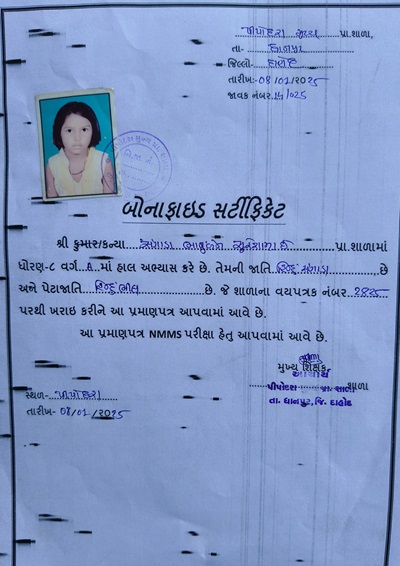 પીપોદરા મુખ્ય પ્રા.શાળા,
તા- ધાનપુર
જિલ્લો- દાહોદ
તારીખ:- 08/01/2025
જાવક નંબર 14/025
બોનાફાઇડ સર્ટીફિકેટ
શ્રી કુમાર/કન્યા પ્રા.શાળામાં
ધોરણ-૮ વર્ગ A માં હાલ અભ્યાસ કરે છે. તેમની જાતિ હિન્દુ છે
અને પેટાજાતિ હિન્દુ ભીલ છે. જે શાળાના વયપત્રક નંબર 2825
પરથી ખરાઇ કરીને આ પ્રમાણપત્ર આપવામાં આવે છે.
આ પ્રમાણપત્ર NMMS પરીક્ષા હેતુ આપવામાં આવે છે.
મુખ્ય શિક્ષક
આચાર્ય
પીપોદરા પ્રા. શાળા શાળા
તા. ધાનપુર, જિ. દાહોદ
સ્થળ- પીપોદરા
તારીખ- 08/01/2025